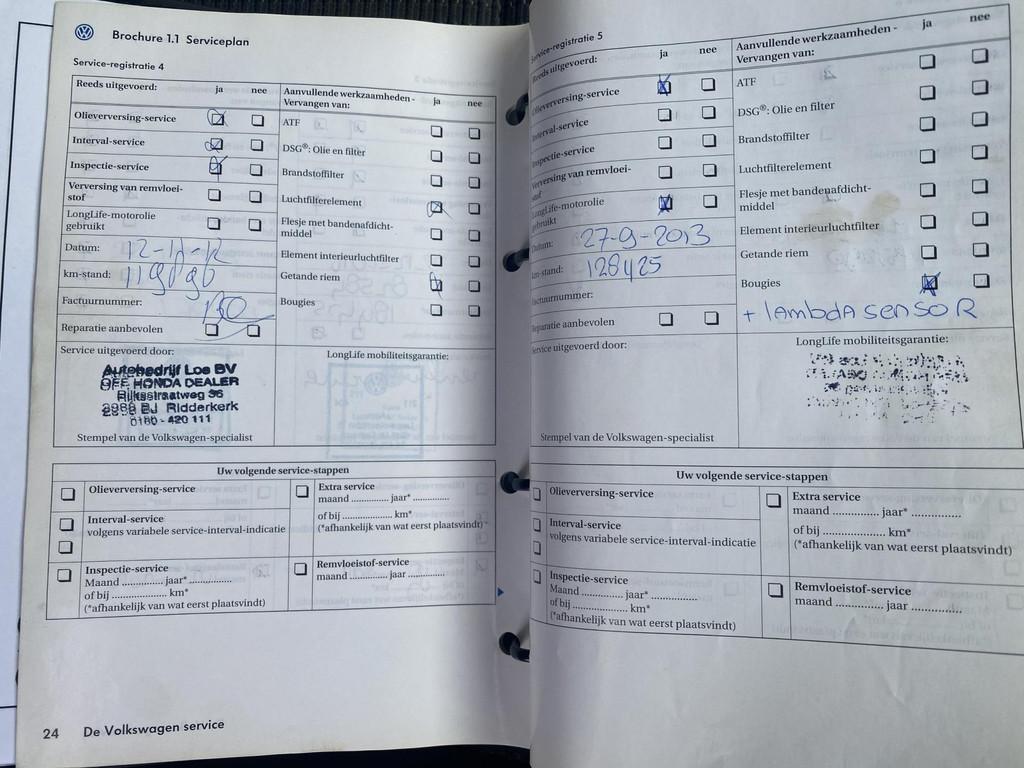 Brochure 1.1 Serviceplan
Service-registratie 4
Reeds uitgevoerd: ja nee
Olieverversing-service
Interval-service
Inspectie-service
Verversing van remvloei-
stof
LongLife-motorolie
gebruikt
Datum:
km-stand:
Factuurnummer:
Reparatie aanbevolen
Aanvullende werkzaamheden -
Vervangen van: ja nee
ATF
DSG®: Olie en filter
Brandstoffilter
Luchtfilterelement
Flesje met bandenafdicht-
middel
Element interieurluchtfilter
Getande riem
Bougies
Service uitgevoerd door:
Autobedrijf Los BV
OFF. HONDA DEALER
Rijksstraatweg 36
2988 BJ Ridderkerk
0180 - 420 111
Stempel van de Volkswagen-specialist
LongLife mobiliteitsgarantie:
Uw volgende service-stappen
Olieverversing-service
Interval-service
volgens variabele service-interval-indicatie
Inspectie-service
Maand ............. jaar* .............
of bij ................... km*
(*afhankelijk van wat eerst plaatsvindt)
Extra service
maand ............. jaar* .............
of bij ................... km*
(*afhankelijk van wat eerst plaatsvindt)
Remvloeistof-service
maand ............. jaar .............
24 De Volkswagen service
Service-registratie 5
Reeds uitgevoerd: ja nee
Olieverversing-service
Interval-service
Inspectie-service
Verversing van remvloei-
stof
LongLife-motorolie
gebruikt
Datum: 27-9-2013
km-stand: 128425
Factuurnummer:
Reparatie aanbevolen
Aanvullende werkzaamheden -
Vervangen van: ja nee
ATF
DSG®: Olie en filter
Brandstoffilter
Luchtfilterelement
Flesje met bandenafdicht-
middel
Element interieurluchtfilter
Getande riem
Bougies
+ lAmbdA senSOR
Service uitgevoerd door:
Stempel van de Volkswagen-specialist
LongLife mobiliteitsgarantie:
Uw volgende service-stappen
Olieverversing-service
Interval-service
volgens variabele service-interval-indicatie
Inspectie-service
Maand ............. jaar* .............
of bij ................... km*
(*afhankelijk van wat eerst plaatsvindt)
Extra service
maand ............. jaar* .............
of bij ................... km*
(*afhankelijk van wat eerst plaatsvindt)
Remvloeistof-service
maand ............. jaar .............